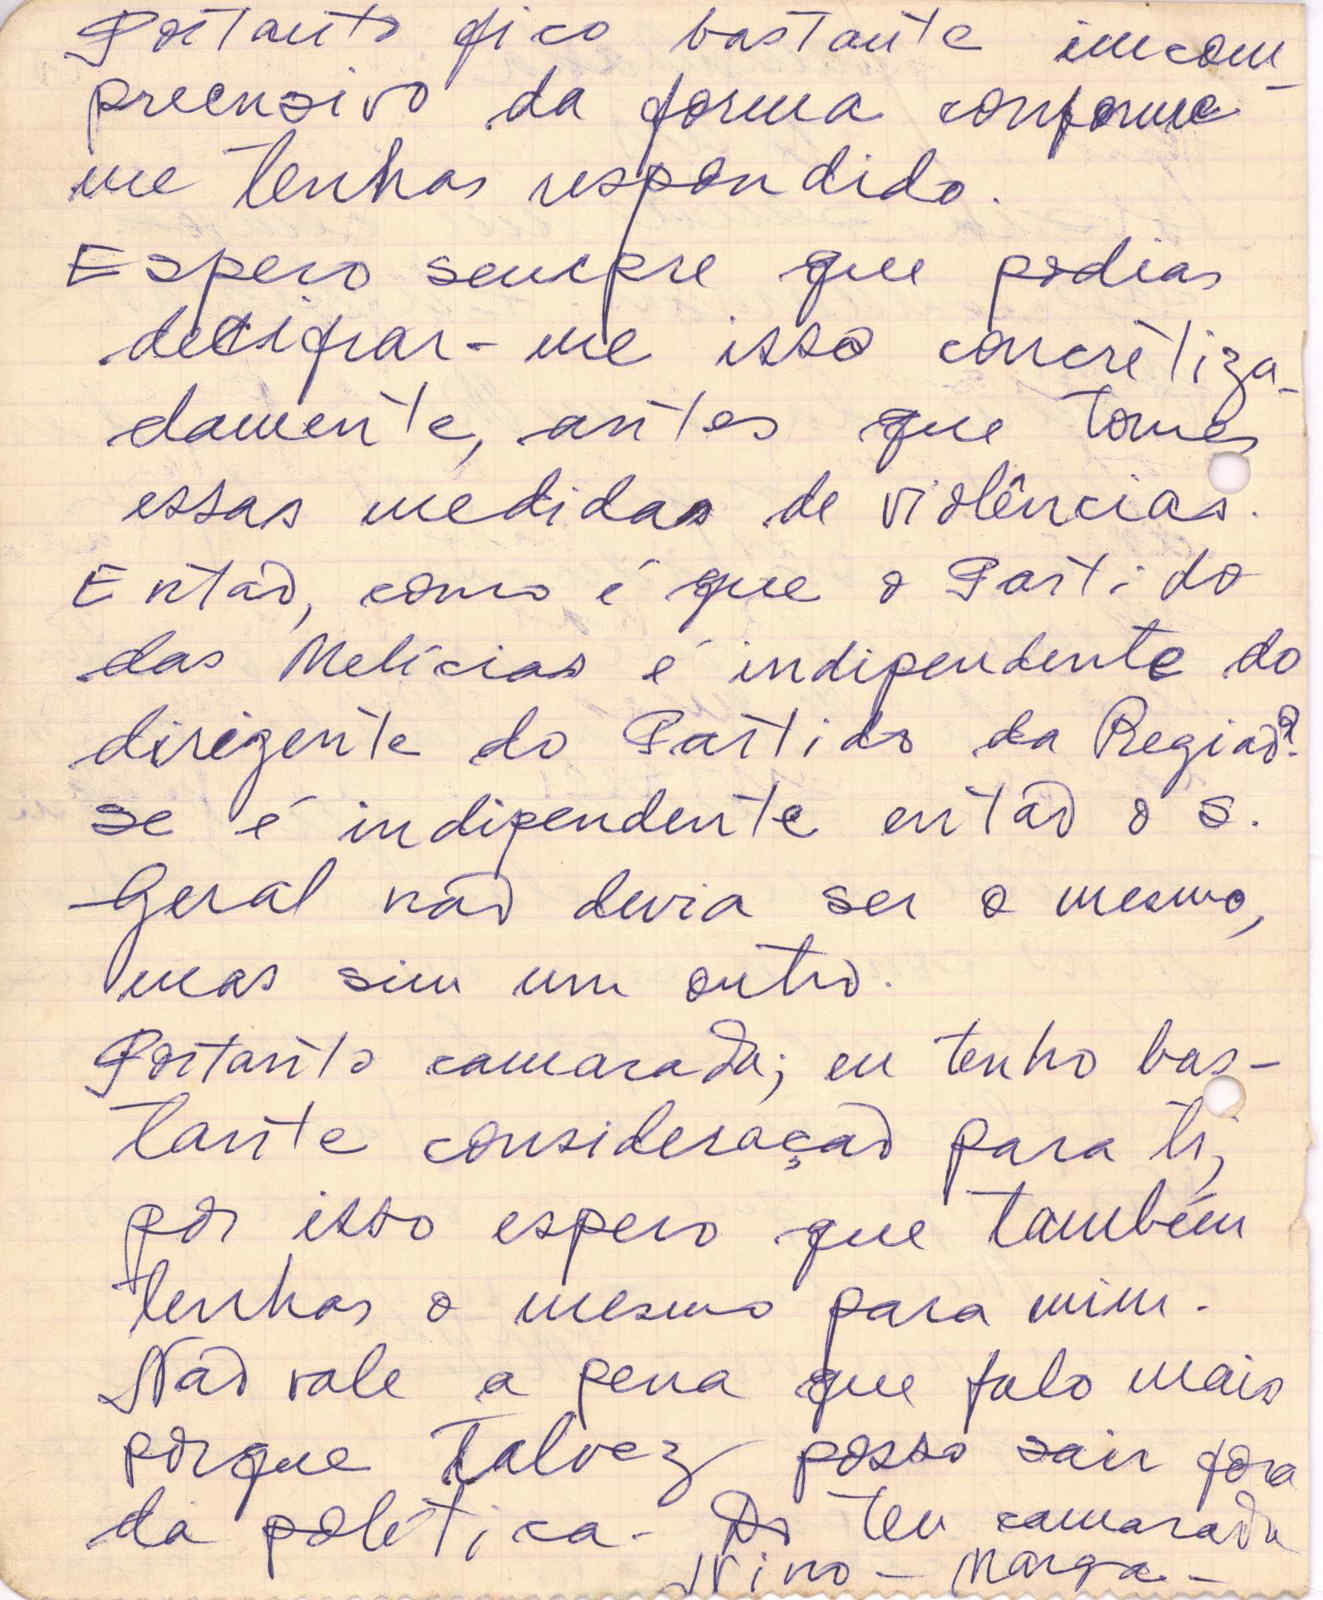 Portanto fico bastante imcom-
preensivo da forma conforme
me tenhas respondido.
Espero sempre que podias
decifrar-me isso concretiza-
damente, antes que tomes
essas medidas de violências.
Então, como é que o Partido
das Melícias é indipendente do
dirigente do Partido da Região?
se é indipendente então o S.
Geral não devia ser o mesmo,
mas sim um outro.
Portanto camarada; eu tenho bas-
tante consideração para ti,
por isso espero que também
tenhas o mesmo para mim.
Não vale a pena que falo mais
porque talvez posso sair fora
da política. Do teu camarada
Nino - Marga -